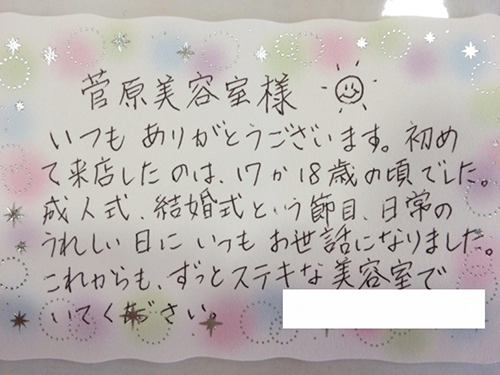 菅原美容室様
いつも ありがとうございます。初め
て来店したのは、17か18歳の頃でした。
成人式、結婚式という節目、日常の
うれしい日に いつも お世話になりました。
これからも、ずっとステキな美容室で
いてください。